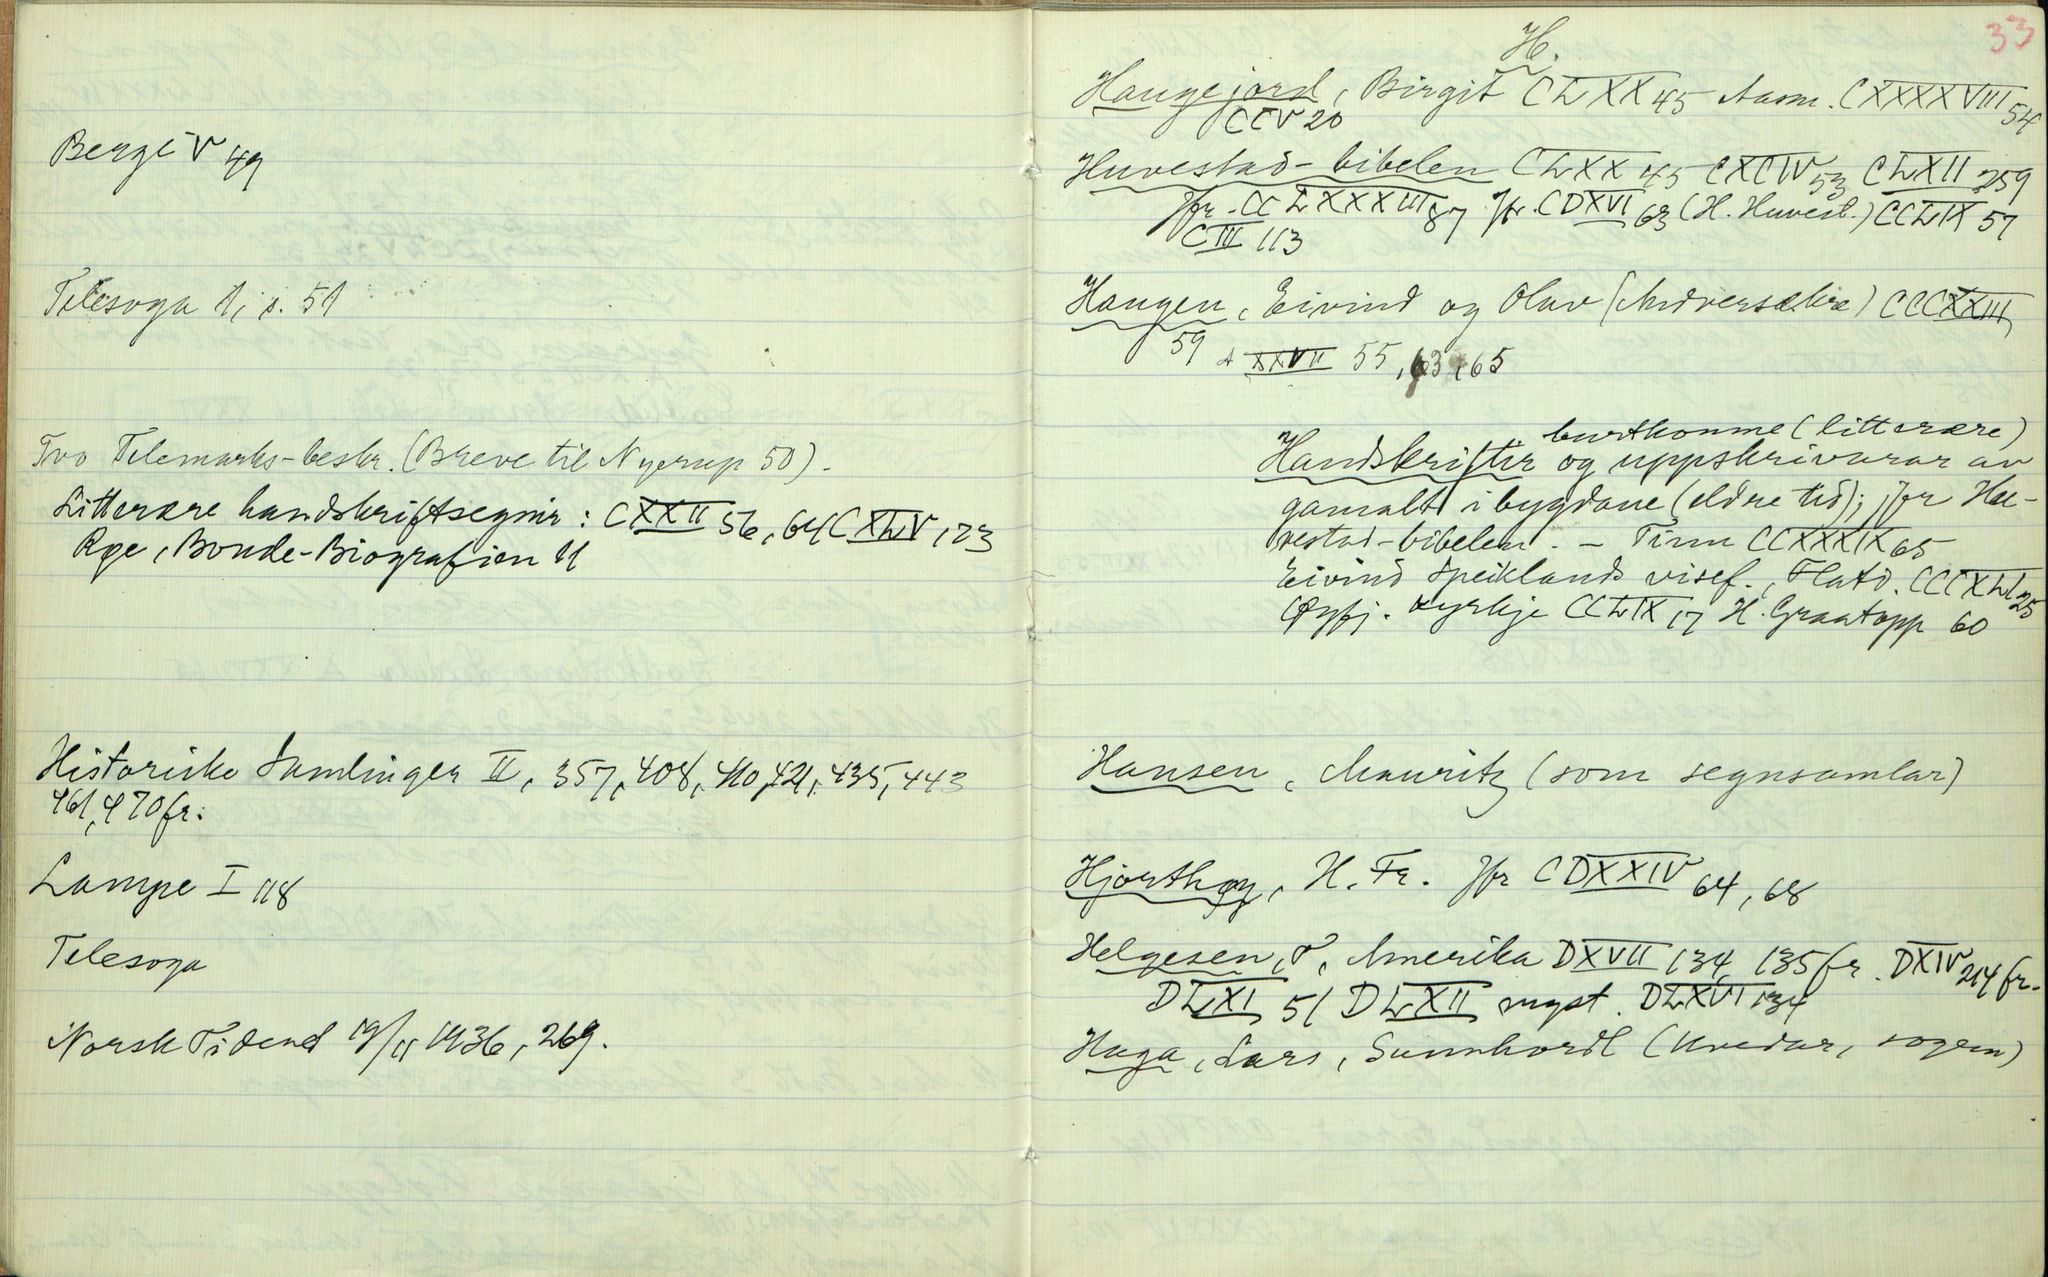 Berge V 49
Telesoga 1, s. 51
Tvo Telemarks-beskr. (Breve til Nyerup 50).
Litterære handskriftsegnir: CXXII 56, 64 CXLV, 123
Røe, Bonde-Biografien 11
Historiske Samlinger II, 357, 408, 410, 421, 435, 443
461, 470 fr.
Lampe I 118
Telesoga
Norsk Tidend 19/11 1936, 269.
33
H.
Haugejord, Birgit CLXX 45 Aasm. CXXXXVIII 54
CCV 20
Huvestad-bibelen CLXX 45 CXCIV 53 CLXII 259
Jfr. CCLXXXIII 87 Jfr. CDXVI 63 (H. Huvest.) CCLIX 57
CIII 113
Haugen, Eivind og Olav CCCXXIII
59 A XXVII 55, 63, 65
burtkomne (litterære)
Handskrifter og uppskrivarar av
gamalt i bygdane (eldre tid); jfr Hu-
vestad-bibelen. - Tinn CCXXXIX 65
Eivind Speiklands visef., Flatd. CCCXLI 25
Øyfj. kyrkje CCLIX 17 H. Graatopp 60
Hansen, Mauritz (som segnsamlar)
Hjorthøy, H. Fr. Jfr CDXXIV 64, 68
Helgesen, T, Amerika DXVII 134, 135 fr. DXIV 214 fr.
DLXI 51 DLXII mgst. DLXVI 134
Haga, Lars, Sunnhordl (kvedar, sogem)